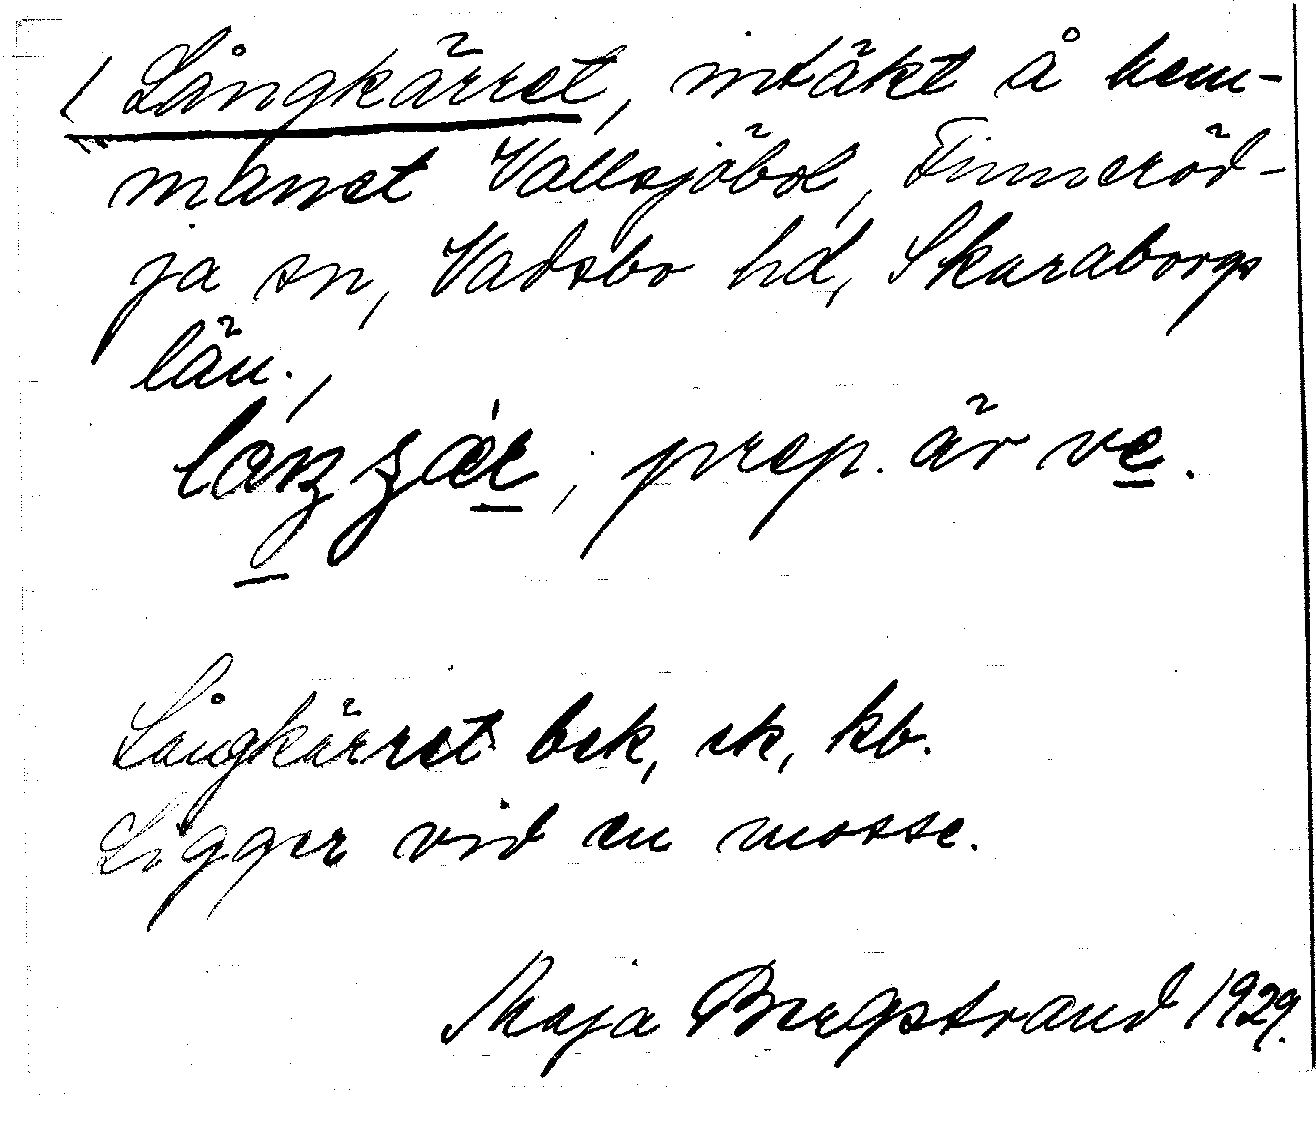 ( Långkärret, intäkt å hem-
manet Vallsjöbol, Finneröd-
ja sn, Vadsbo hd, Skaraborgs
län.,
prep. är ve.
Långkärret bek, ek, kb.
Ligger vid en mosse.
Maja Bergstrand 1929.